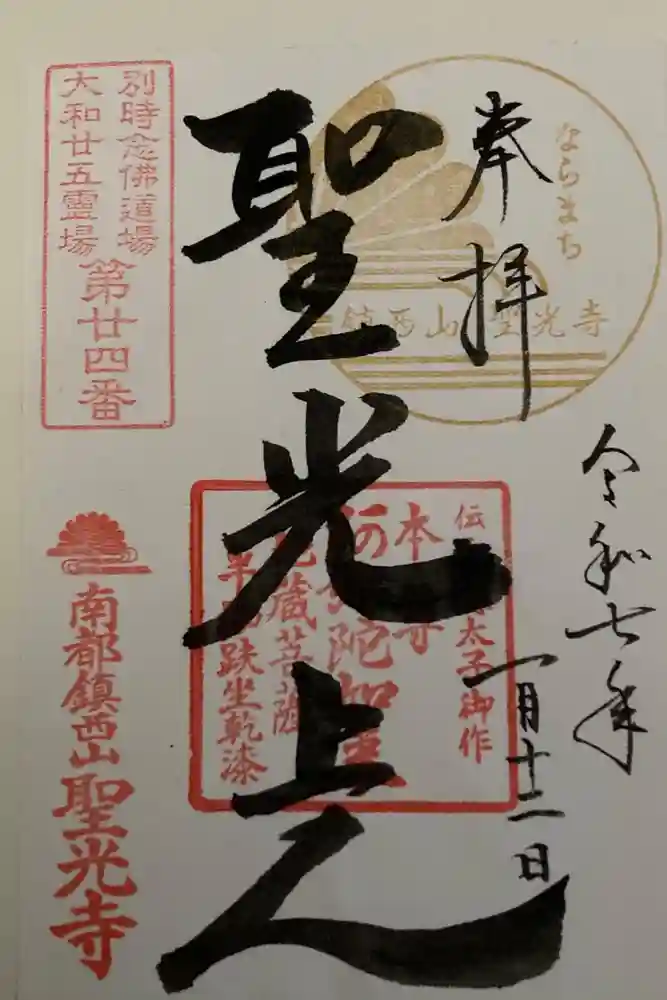 奉拝
ならまち
鎮西山 聖光寺
令和七年
一月十二日
聖光上人
伝 太子御作
本尊
陀如
地蔵菩薩
半跏趺坐乾漆
別時念佛道場
大和廿五霊場
第廿四番
南都鎮西山
聖光寺